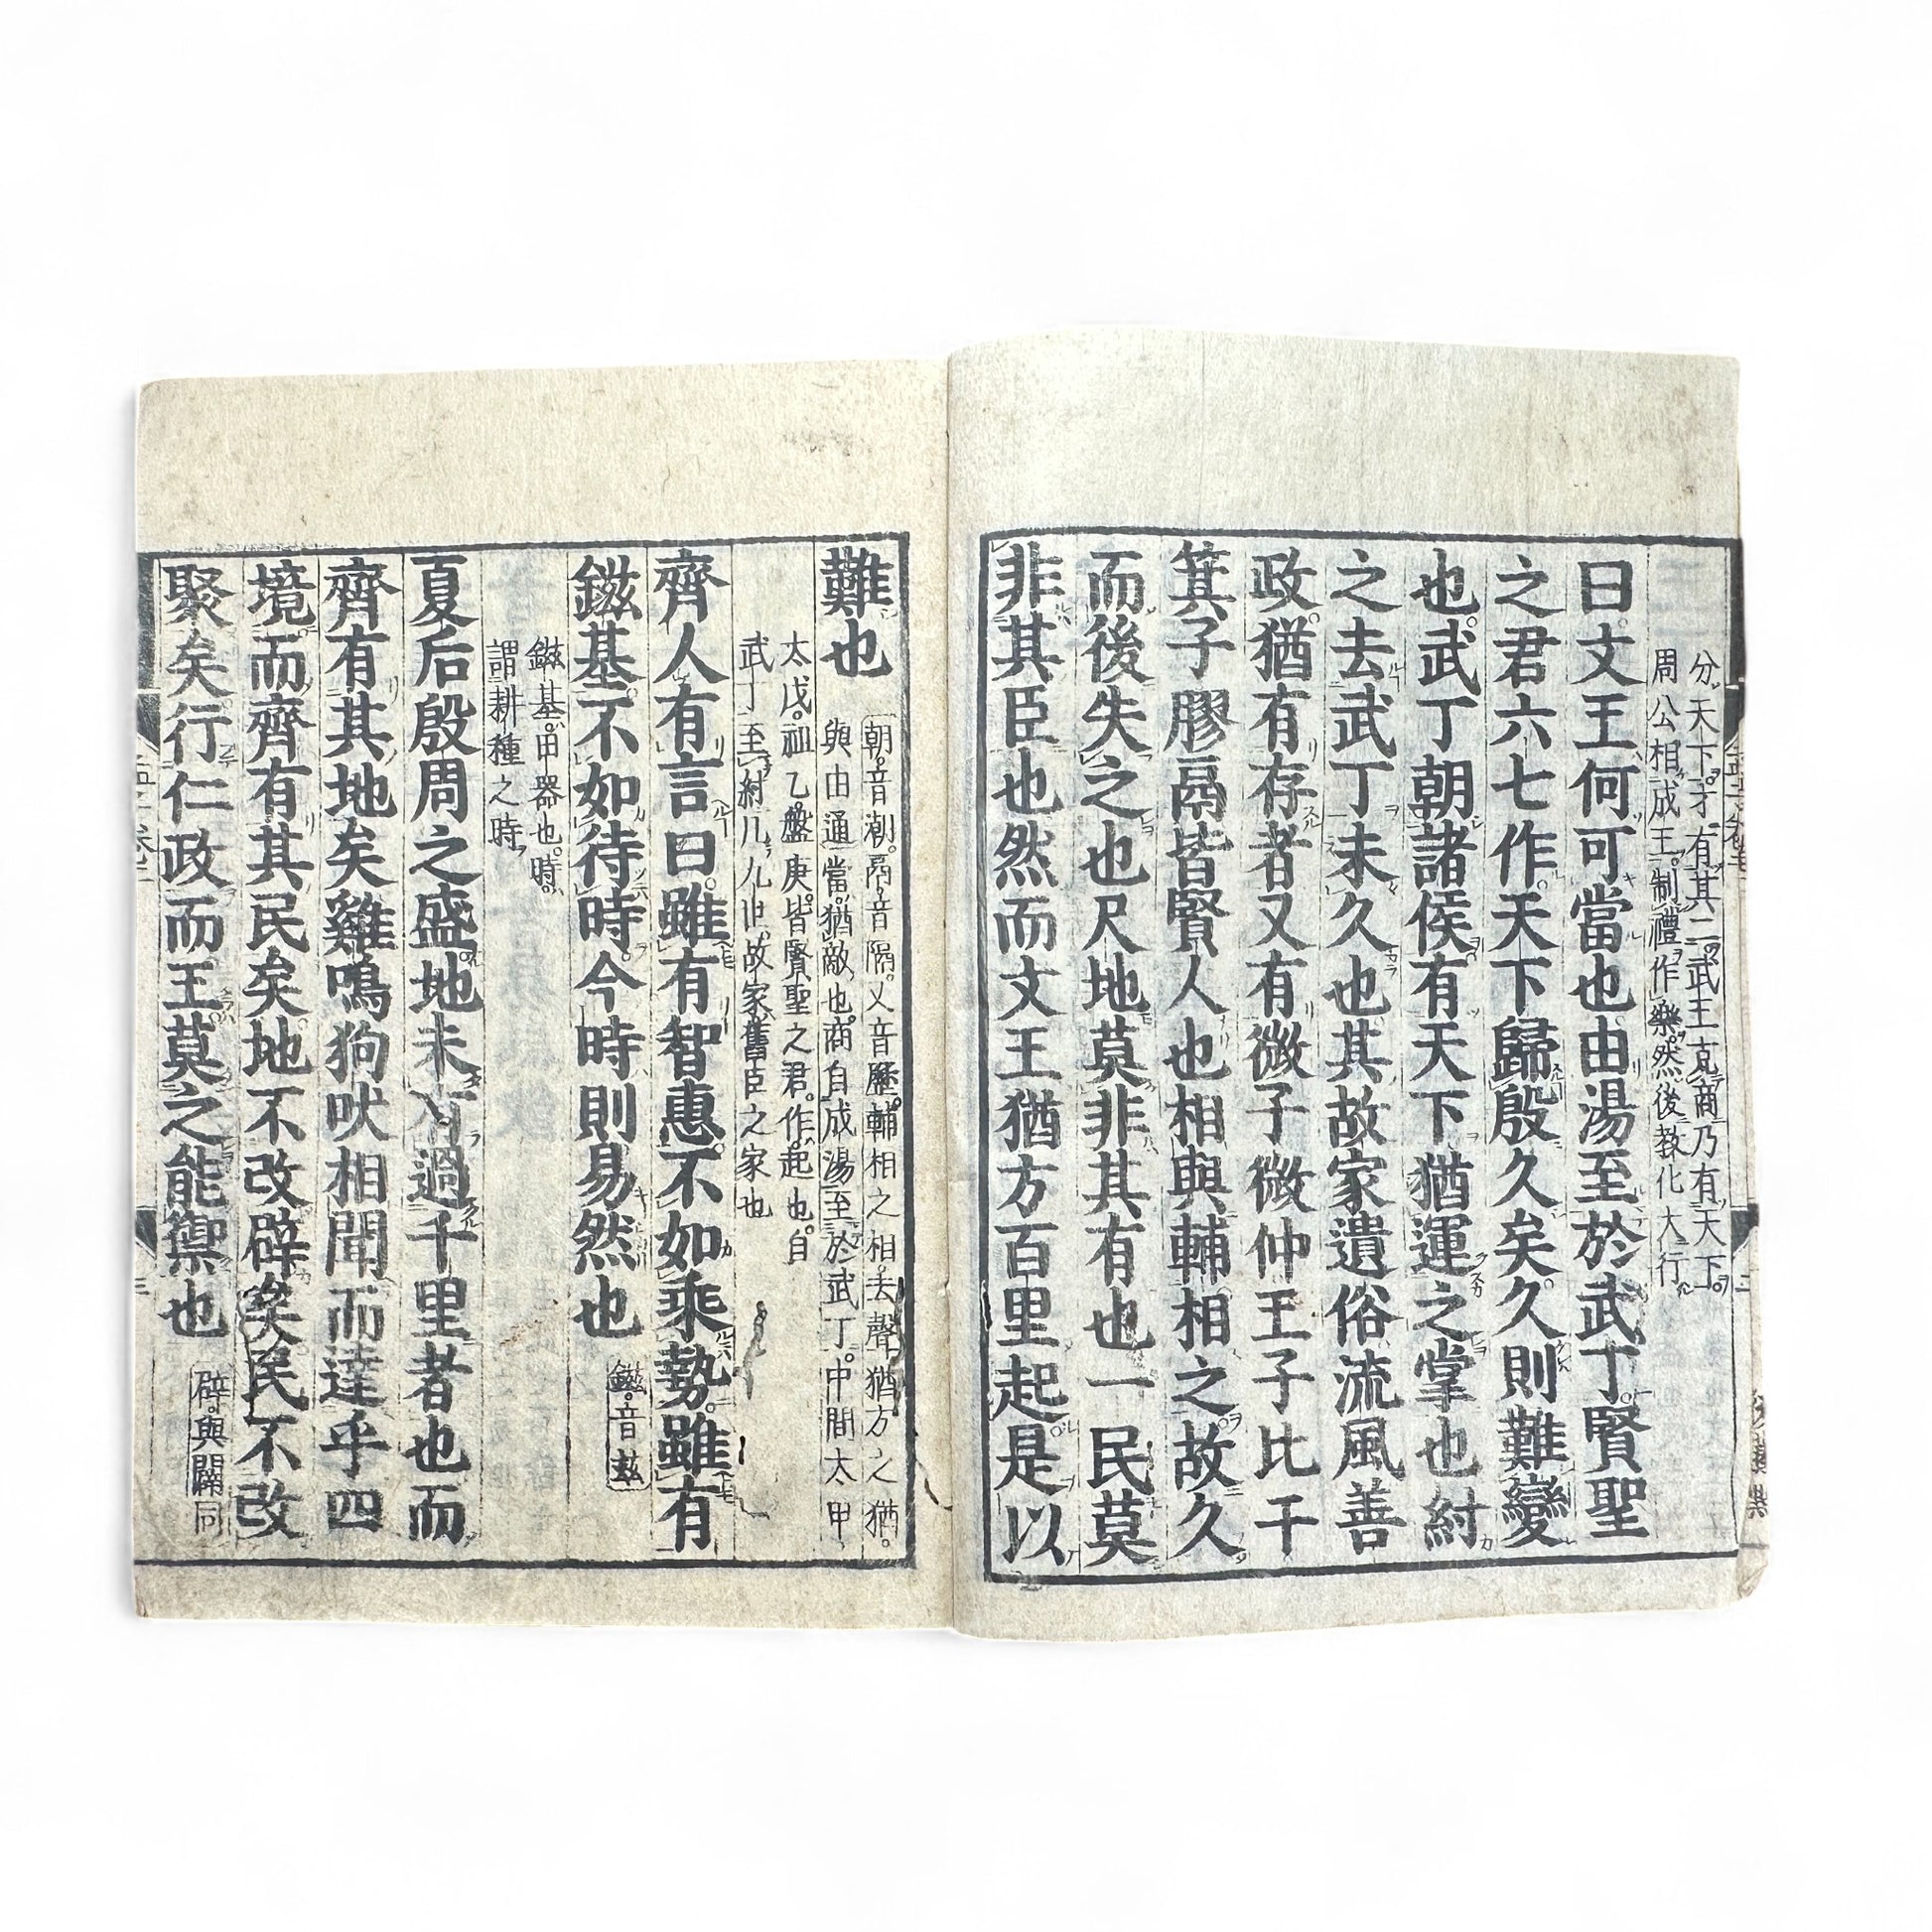 分天下才有其二武王克商乃有天下
周公相成王制禮作樂然後教化大行
曰文王何可當也由湯至於武丁賢聖
之君六七作天下歸殷久矣久則難變
也武丁朝諸侯有天下猶運之掌也紂
之去武丁未久也其故家遺俗流風善
政猶有存者又有微子微仲王子比干
箕子膠鬲皆賢人也相與輔相之故久
而後失之也尺地莫非其有也一民莫
非其臣也然而文王猶方百里起是以
難也
朝音潮鬲音隔又音歷輔相之相去聲猶方之猶
與由通當猶敵也商自成湯至於武丁中間太甲
太戊祖乙盤庚皆賢聖之君作起也自
武丁至紂凡九世故家舊臣之家也
齊人有言曰雖有智惠不如乘勢雖有
鎡基不如待時今時則易然也
鎡音玆
鎡基田器也時
謂耕種之時
夏后殷周之盛地未有過千里者也而
齊有其地矣雞鳴狗吠相聞而達乎四
境而齊有其民矣地不改辟矣民不改
聚矣行仁政而王莫之能禦也
辟與闢同